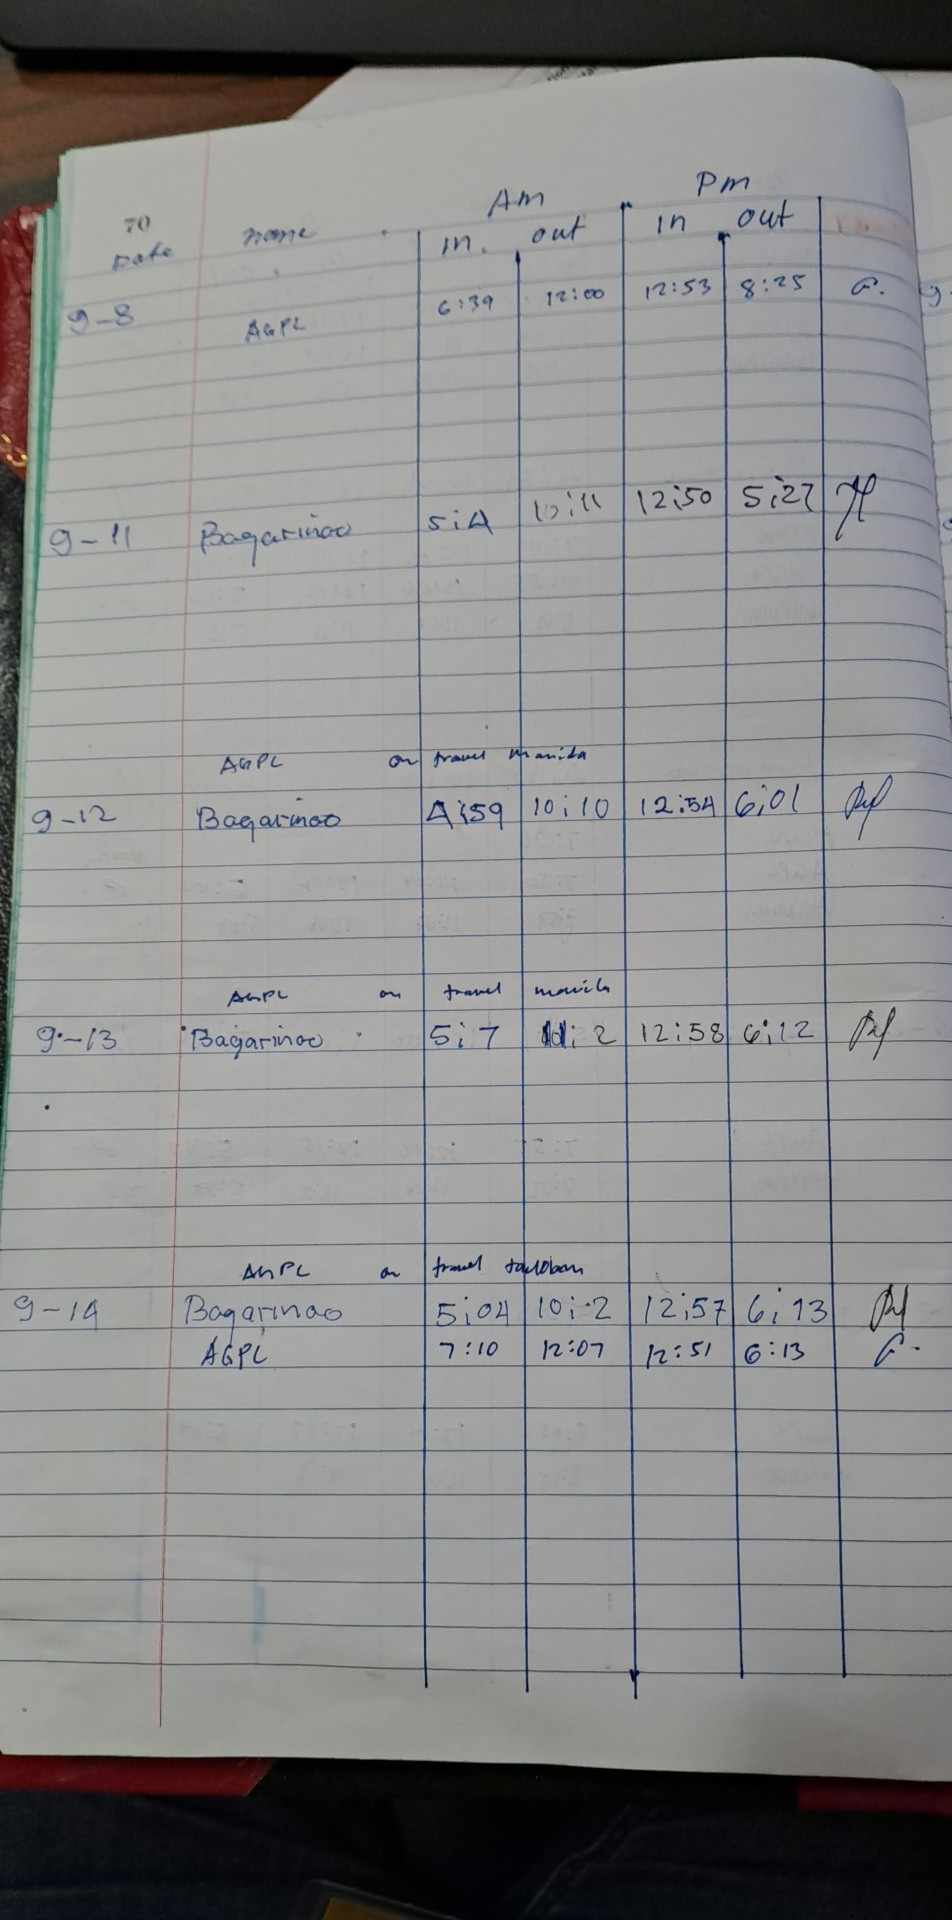 70
Am Pm
Date name in. out in out
9-8 AGPL 6:39 12:00 12:53 8:25
9-11 Bagarinao 5:4 10:11 12:50 5:27
AGPL on travel manila
9-12 Bagarinao 4:59 10:10 12:54 6:01
AGPL on travel manila
9-13 Bagarinao 5:7 12:58 6:12
AGPL on travel tacloban
9-14 Bagarinao 5:04 10:2 12:57 6:13
AGPL 7:10 12:07 12:51 6:13